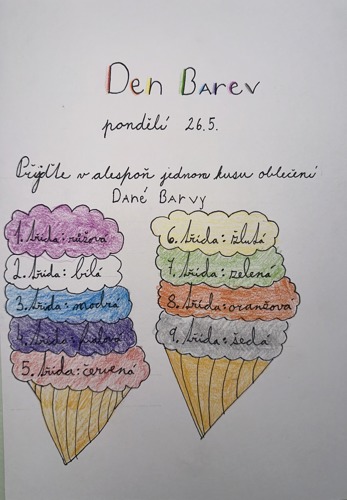 Den Barev
pondělí 26.5.
Přijďte v alespoň jednom kusu oblečení
Dané Barvy
1. třída: růžová
2. třída: bílá
3. třída: modrá
4. třída: fialová
5. třída: červená
6. třída: žlutá
7. třída: zelená
8. třída: oranžová
9. třída: šedá